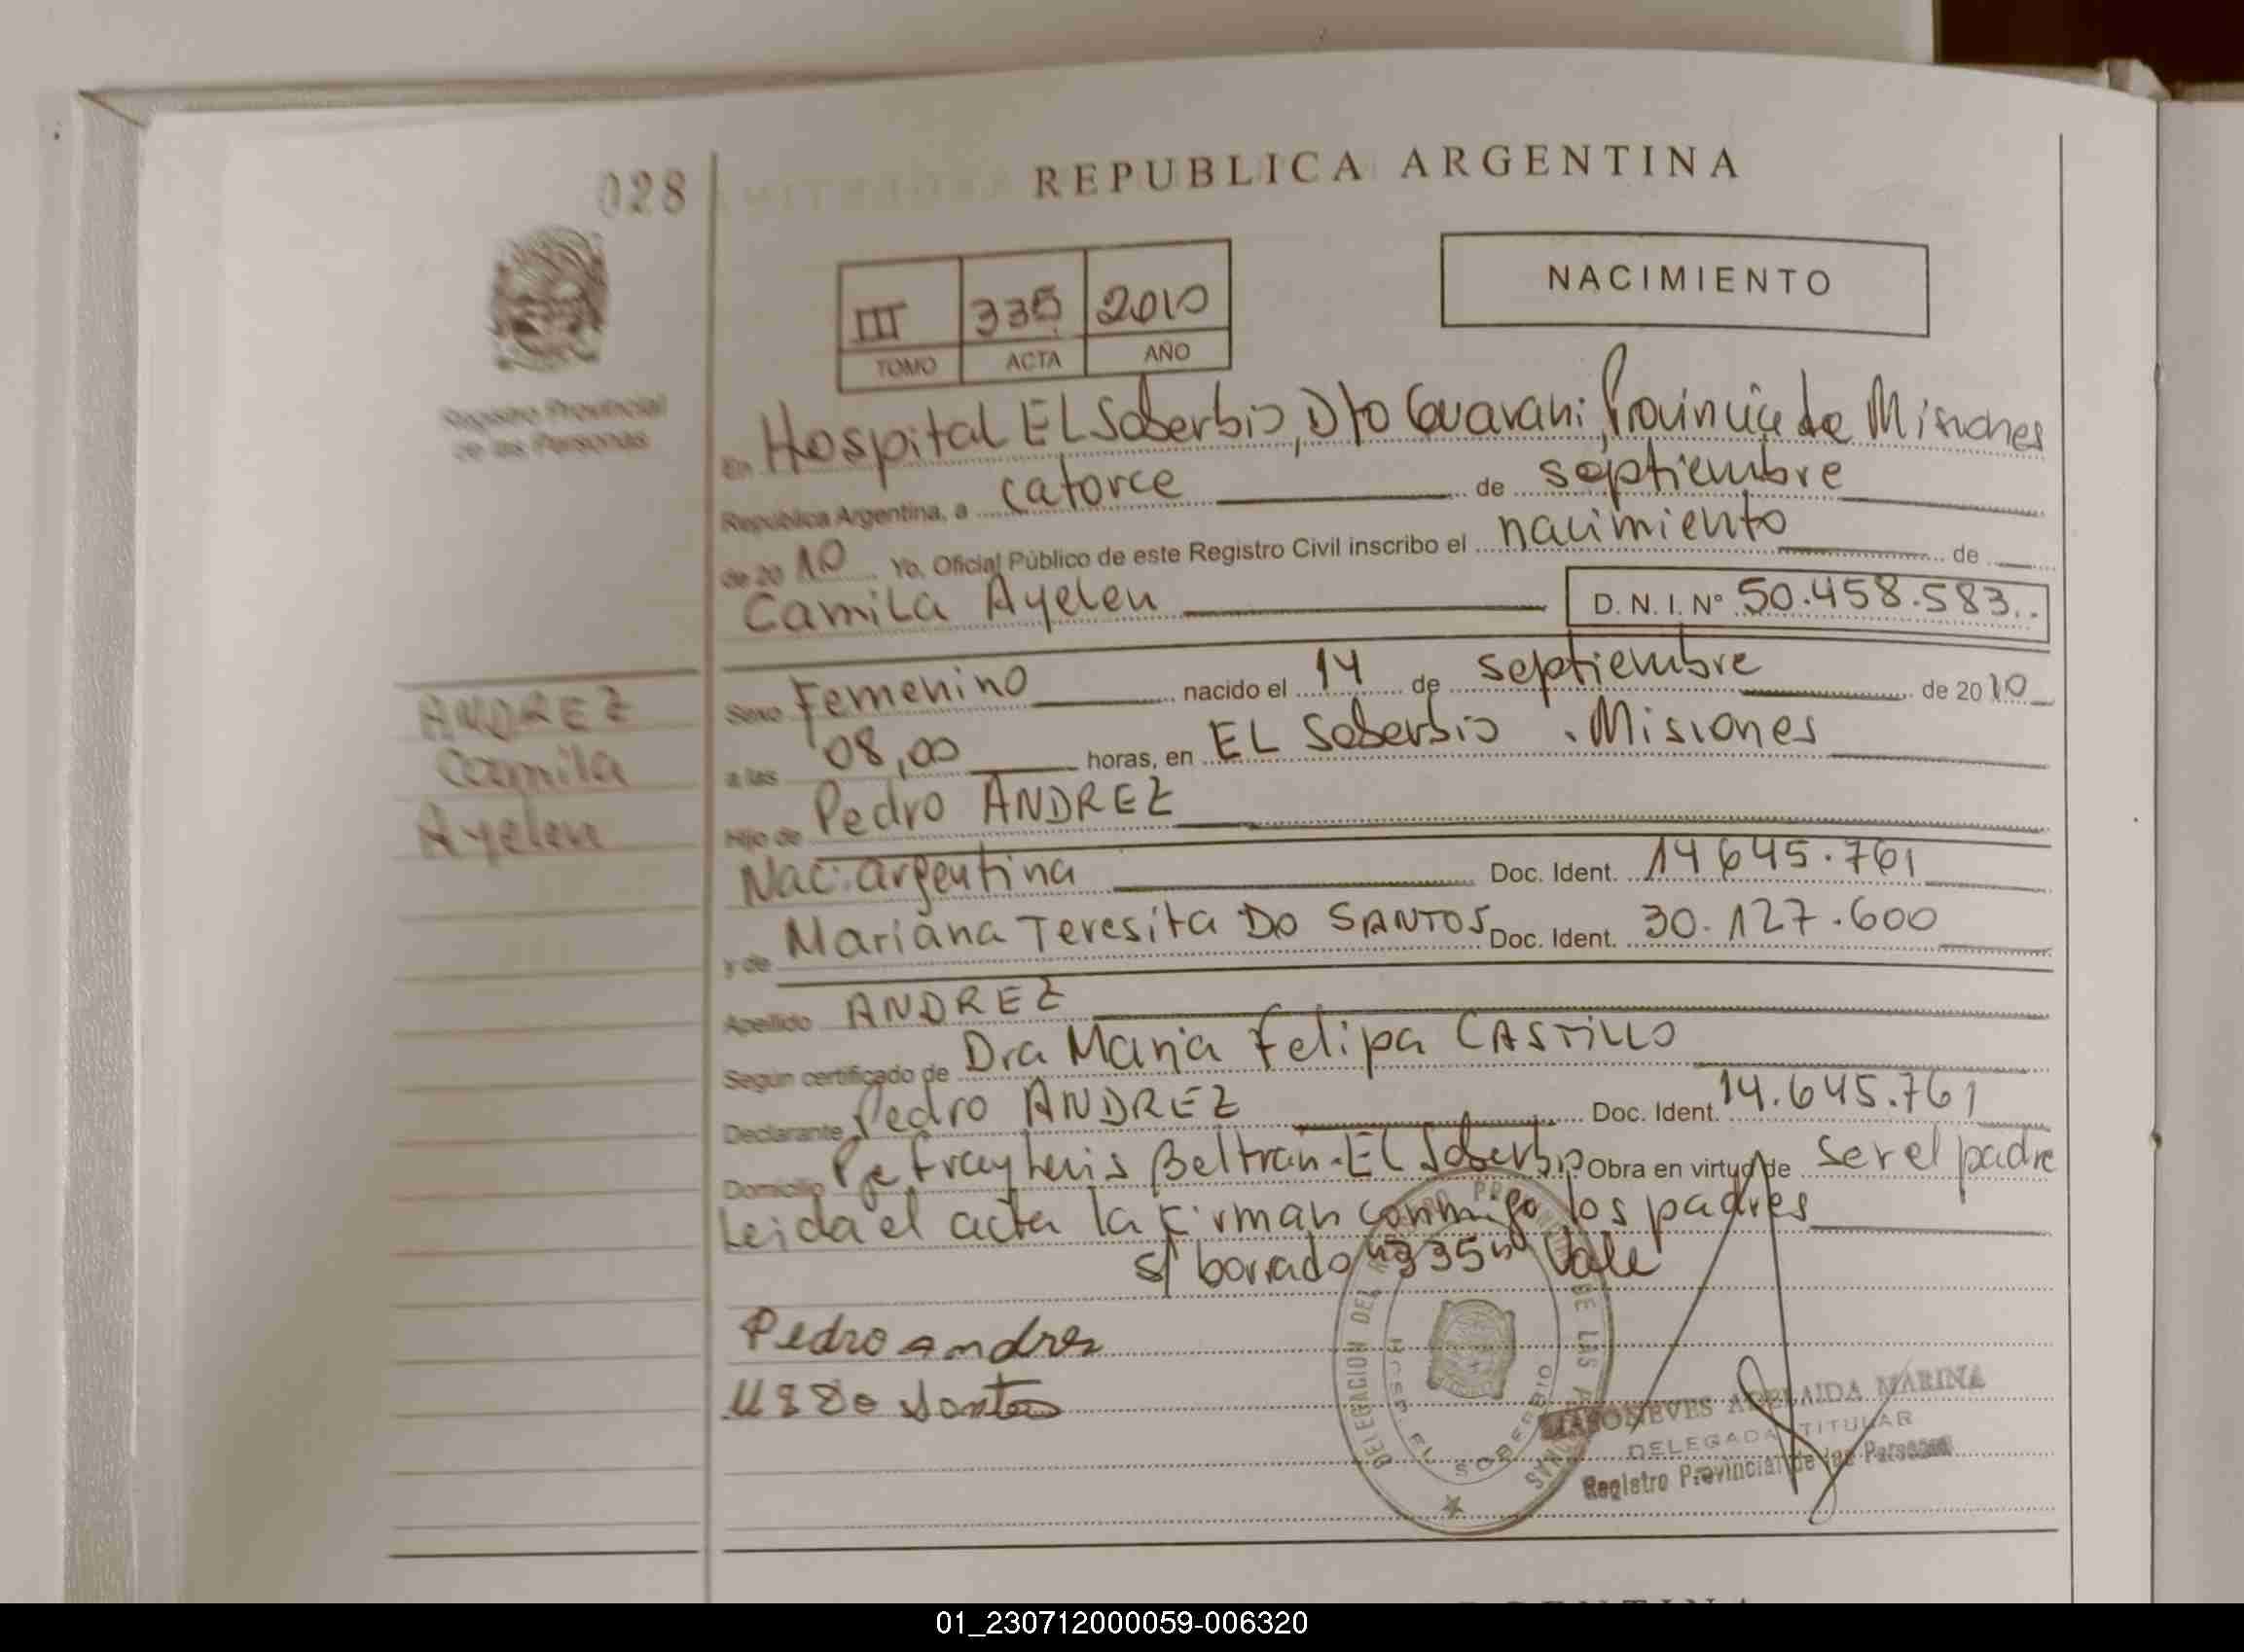 028
REPUBLICA ARGENTINA
NACIMIENTO
III 335 2010
TOMO ACTA AÑO
Registro Provincial
de las Personas
En Hospital El Soberbio, Dto Guarani, Provincia de Misiones
República Argentina, a catorce de septiembre
de 2010 Yo, Oficial Público de este Registro Civil inscribo el nacimiento de
Camila Ayelen D. N. I. Nº 50.458.583
ANDREZ
Camila
Ayelen
Sexo Femenino nacido el 14 de septiembre de 2010
a las 08,00 horas, en EL Soberbio . Misiones
Hijo de Pedro ANDREZ
Nac. argentina Doc. Ident. 14645.761
y de Mariana Teresita DO SANTOS Doc. Ident. 30.127.600
Apellido ANDREZ
Según certificado de Dra Maria Felipa CASTILLO
Declarante Pedro ANDREZ Doc. Ident. 14.645.761
Domicilio Fray Luis Beltran - El Soberbio Obra en virtud de ser el padre
Leida el acta la firman conmigo los padres
s/ borrado "335" Vale
Pedro andrez
Do Santos
DELEGACION DEL REGISTRO PROVINCIAL DE LAS PERSONAS
EL SOBERBIO
ADELAIDA MARINA
DELEGADA TITULAR
Registro Provincial de las Personas
01_230712000059-006320